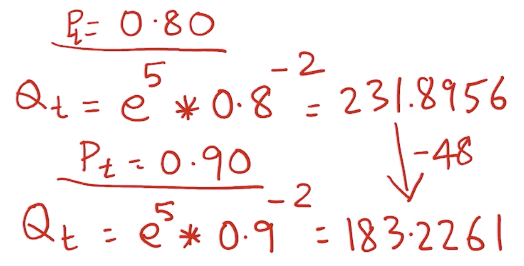 P_t = 0.80
Q_t = e^5 * 0.8^-2 = 231.8956
P_t = 0.90
-48
Q_t = e^5 * 0.9^-2 = 183.2261